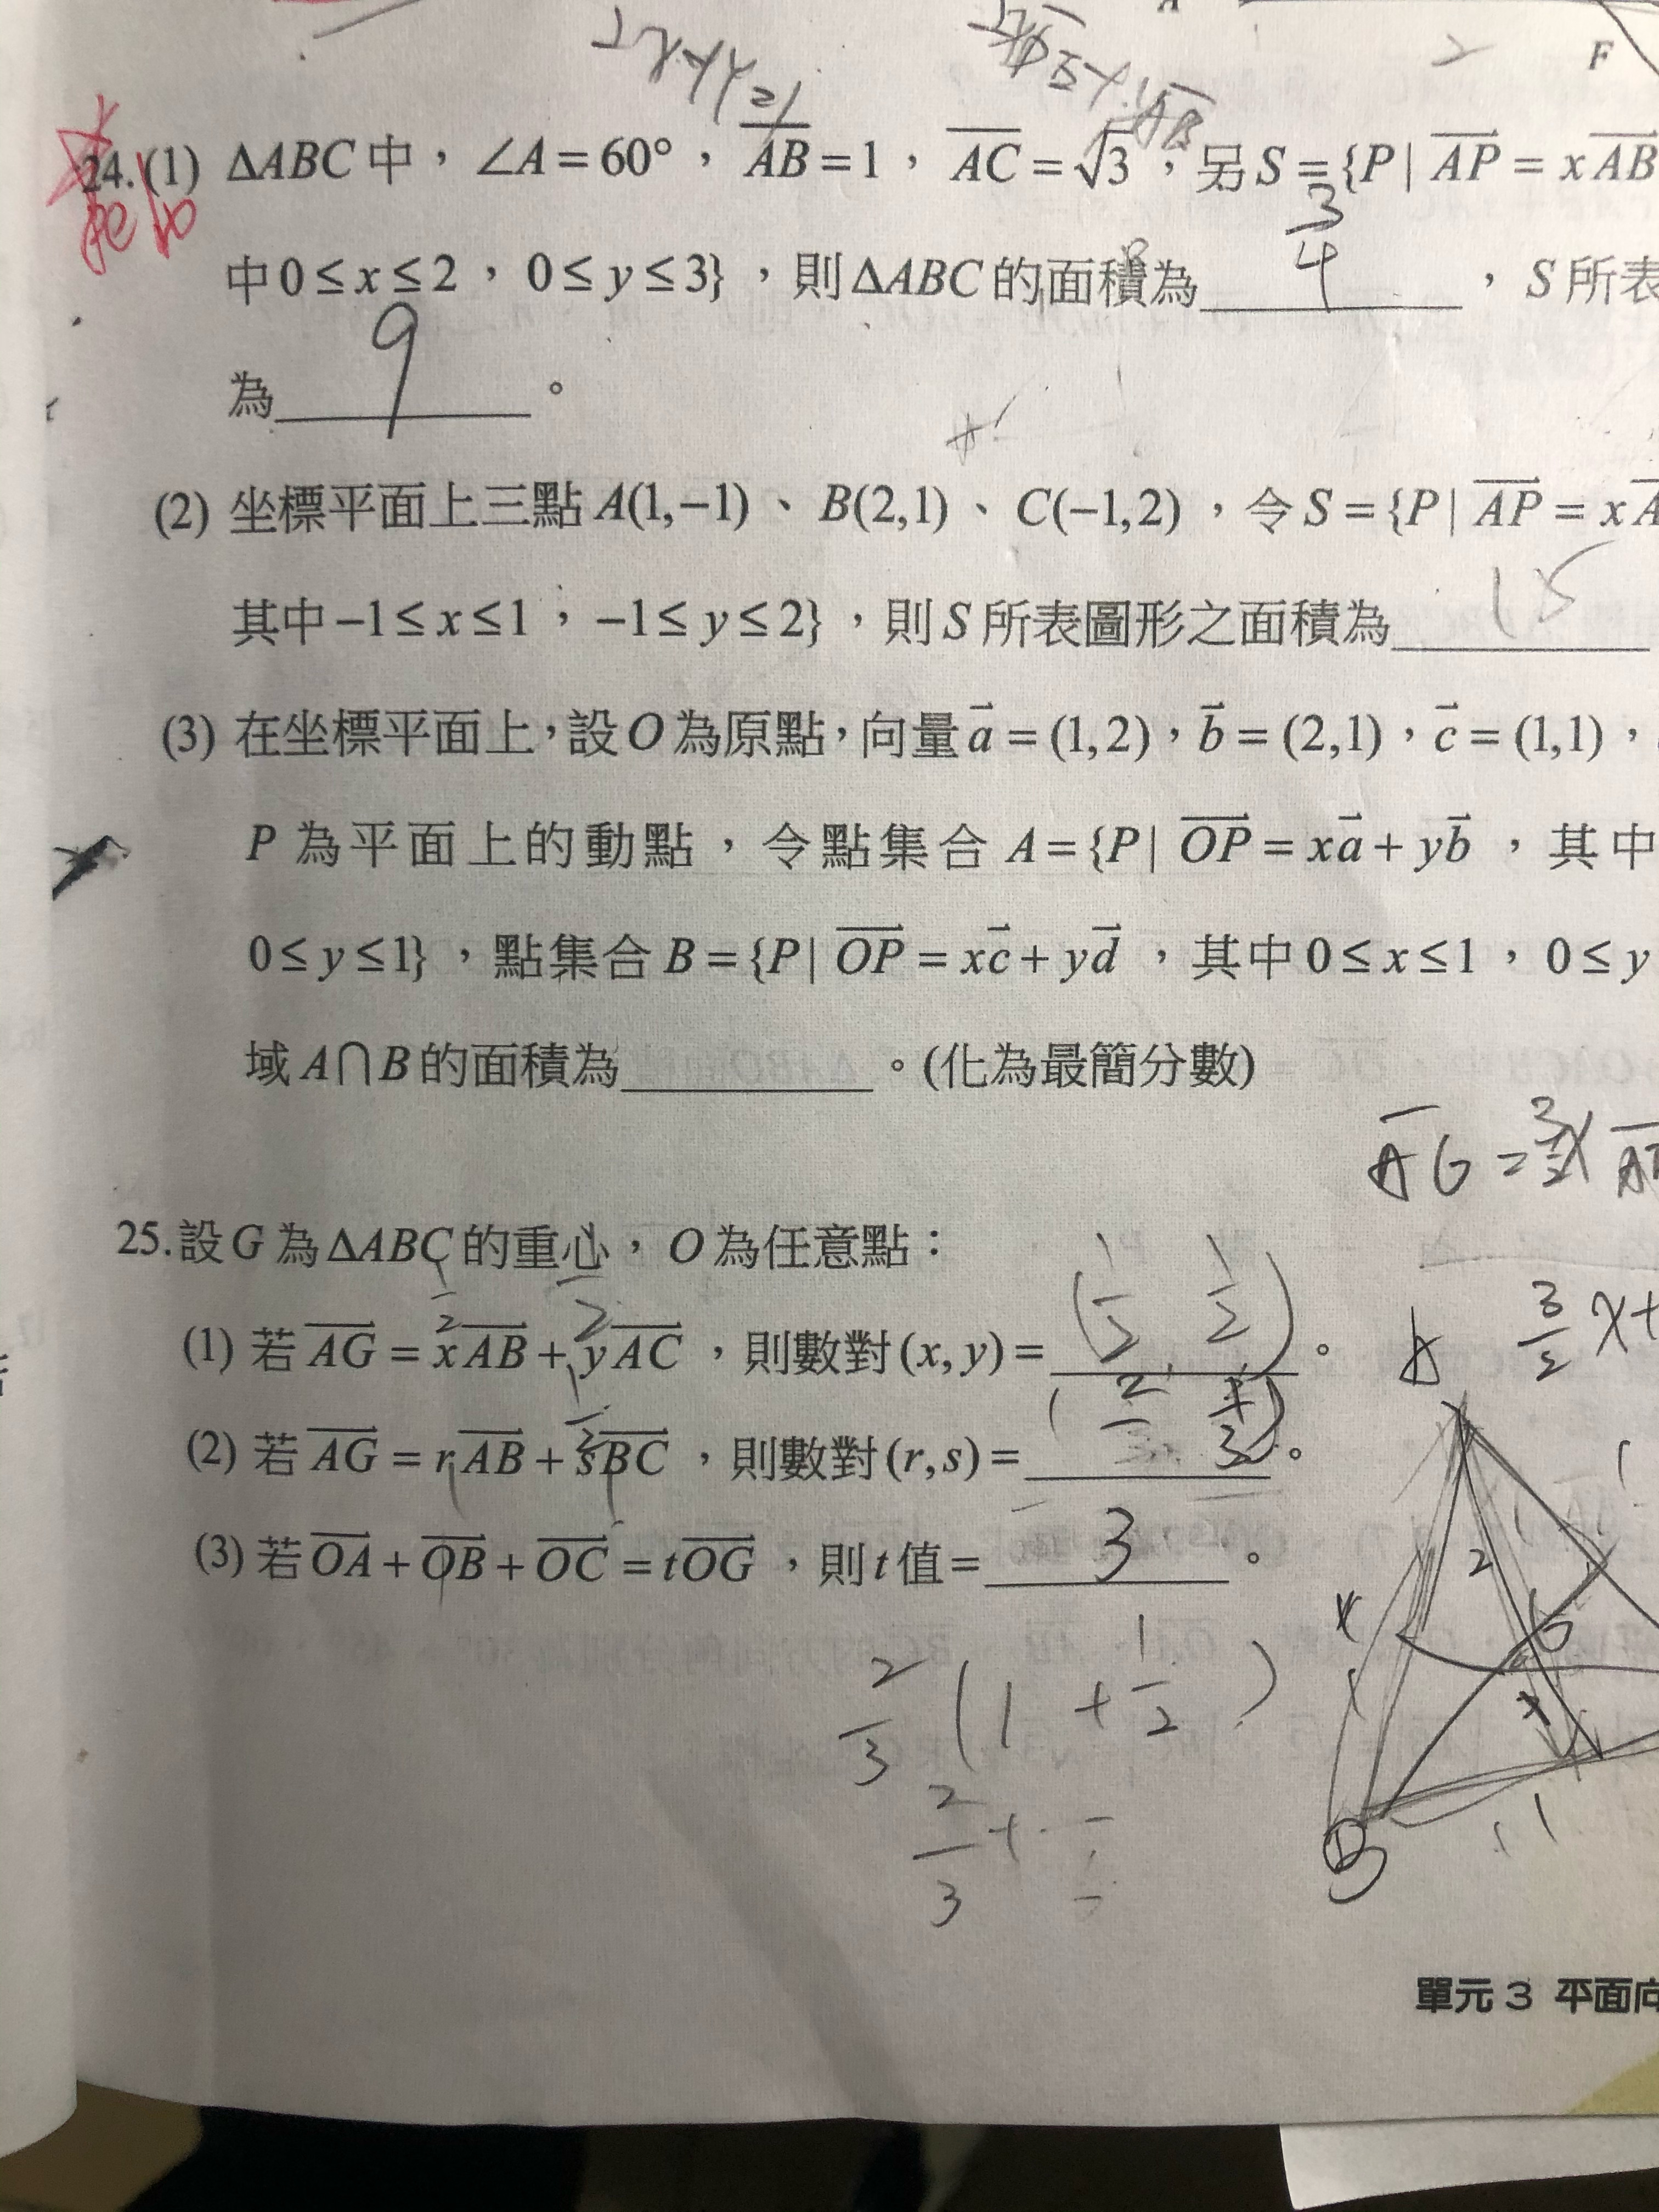 F
24.(1) ΔABC中，∠A=60°，AB=1，AC=√3，另S={P| AP = xAB
3/4
中0≤x≤2，0≤y≤3}，則ΔABC的面積為______，S所表
9
為______。
(2) 坐標平面上三點A(1,−1)、B(2,1)、C(−1,2)，令S={P| AP = xA
15
其中−1≤x≤1，−1≤y≤2}，則S所表圖形之面積為______
(3) 在坐標平面上，設O為原點，向量a=(1,2)，b=(2,1)，c=(1,1)，
P為平面上的動點，令點集合 A={P| OP = xa + yb ，其中
0≤y≤1}，點集合B={P| OP = xc + yd ，其中0≤x≤1，0≤y
域A∩B的面積為______。(化為最簡分數)
25.設G為ΔABC的重心，O為任意點：
(1) 若AG = xAB + yAC ，則數對(x,y)=______。
(1/2, 1/2)
3/2 x+
(2) 若AG = rAB + sBC ，則數對(r,s)=______。
(3) 若OA + OB + OC = tOG ，則t值= 3 。
2/3 (1 + 1/2)
2/3 +
B
單元 3 平面向